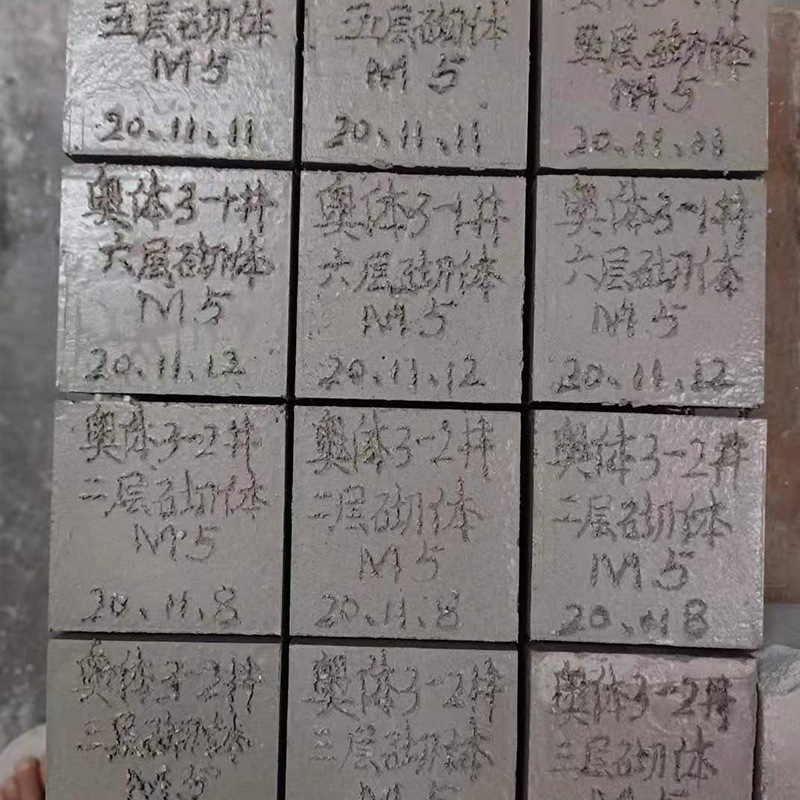 五层砌体
M5
20.11.11
五层砌体
M5
20.11.11
五层砌体
M5
20.11.11
奥体3-1#
六层砌体
M5
20.11.12
奥体3-1#
六层砌体
M5
20.11.12
奥体3-1#
六层砌体
M5
20.11.12
奥体3-2#
二层砌体
M5
20.11.8
奥体3-2#
二层砌体
M5
20.11.8
奥体3-2#
二层砌体
M5
20.11.8
奥体3-2#
三层砌体
M5
奥体3-2#
三层砌体
M5
奥体3-2#
三层砌体
M5